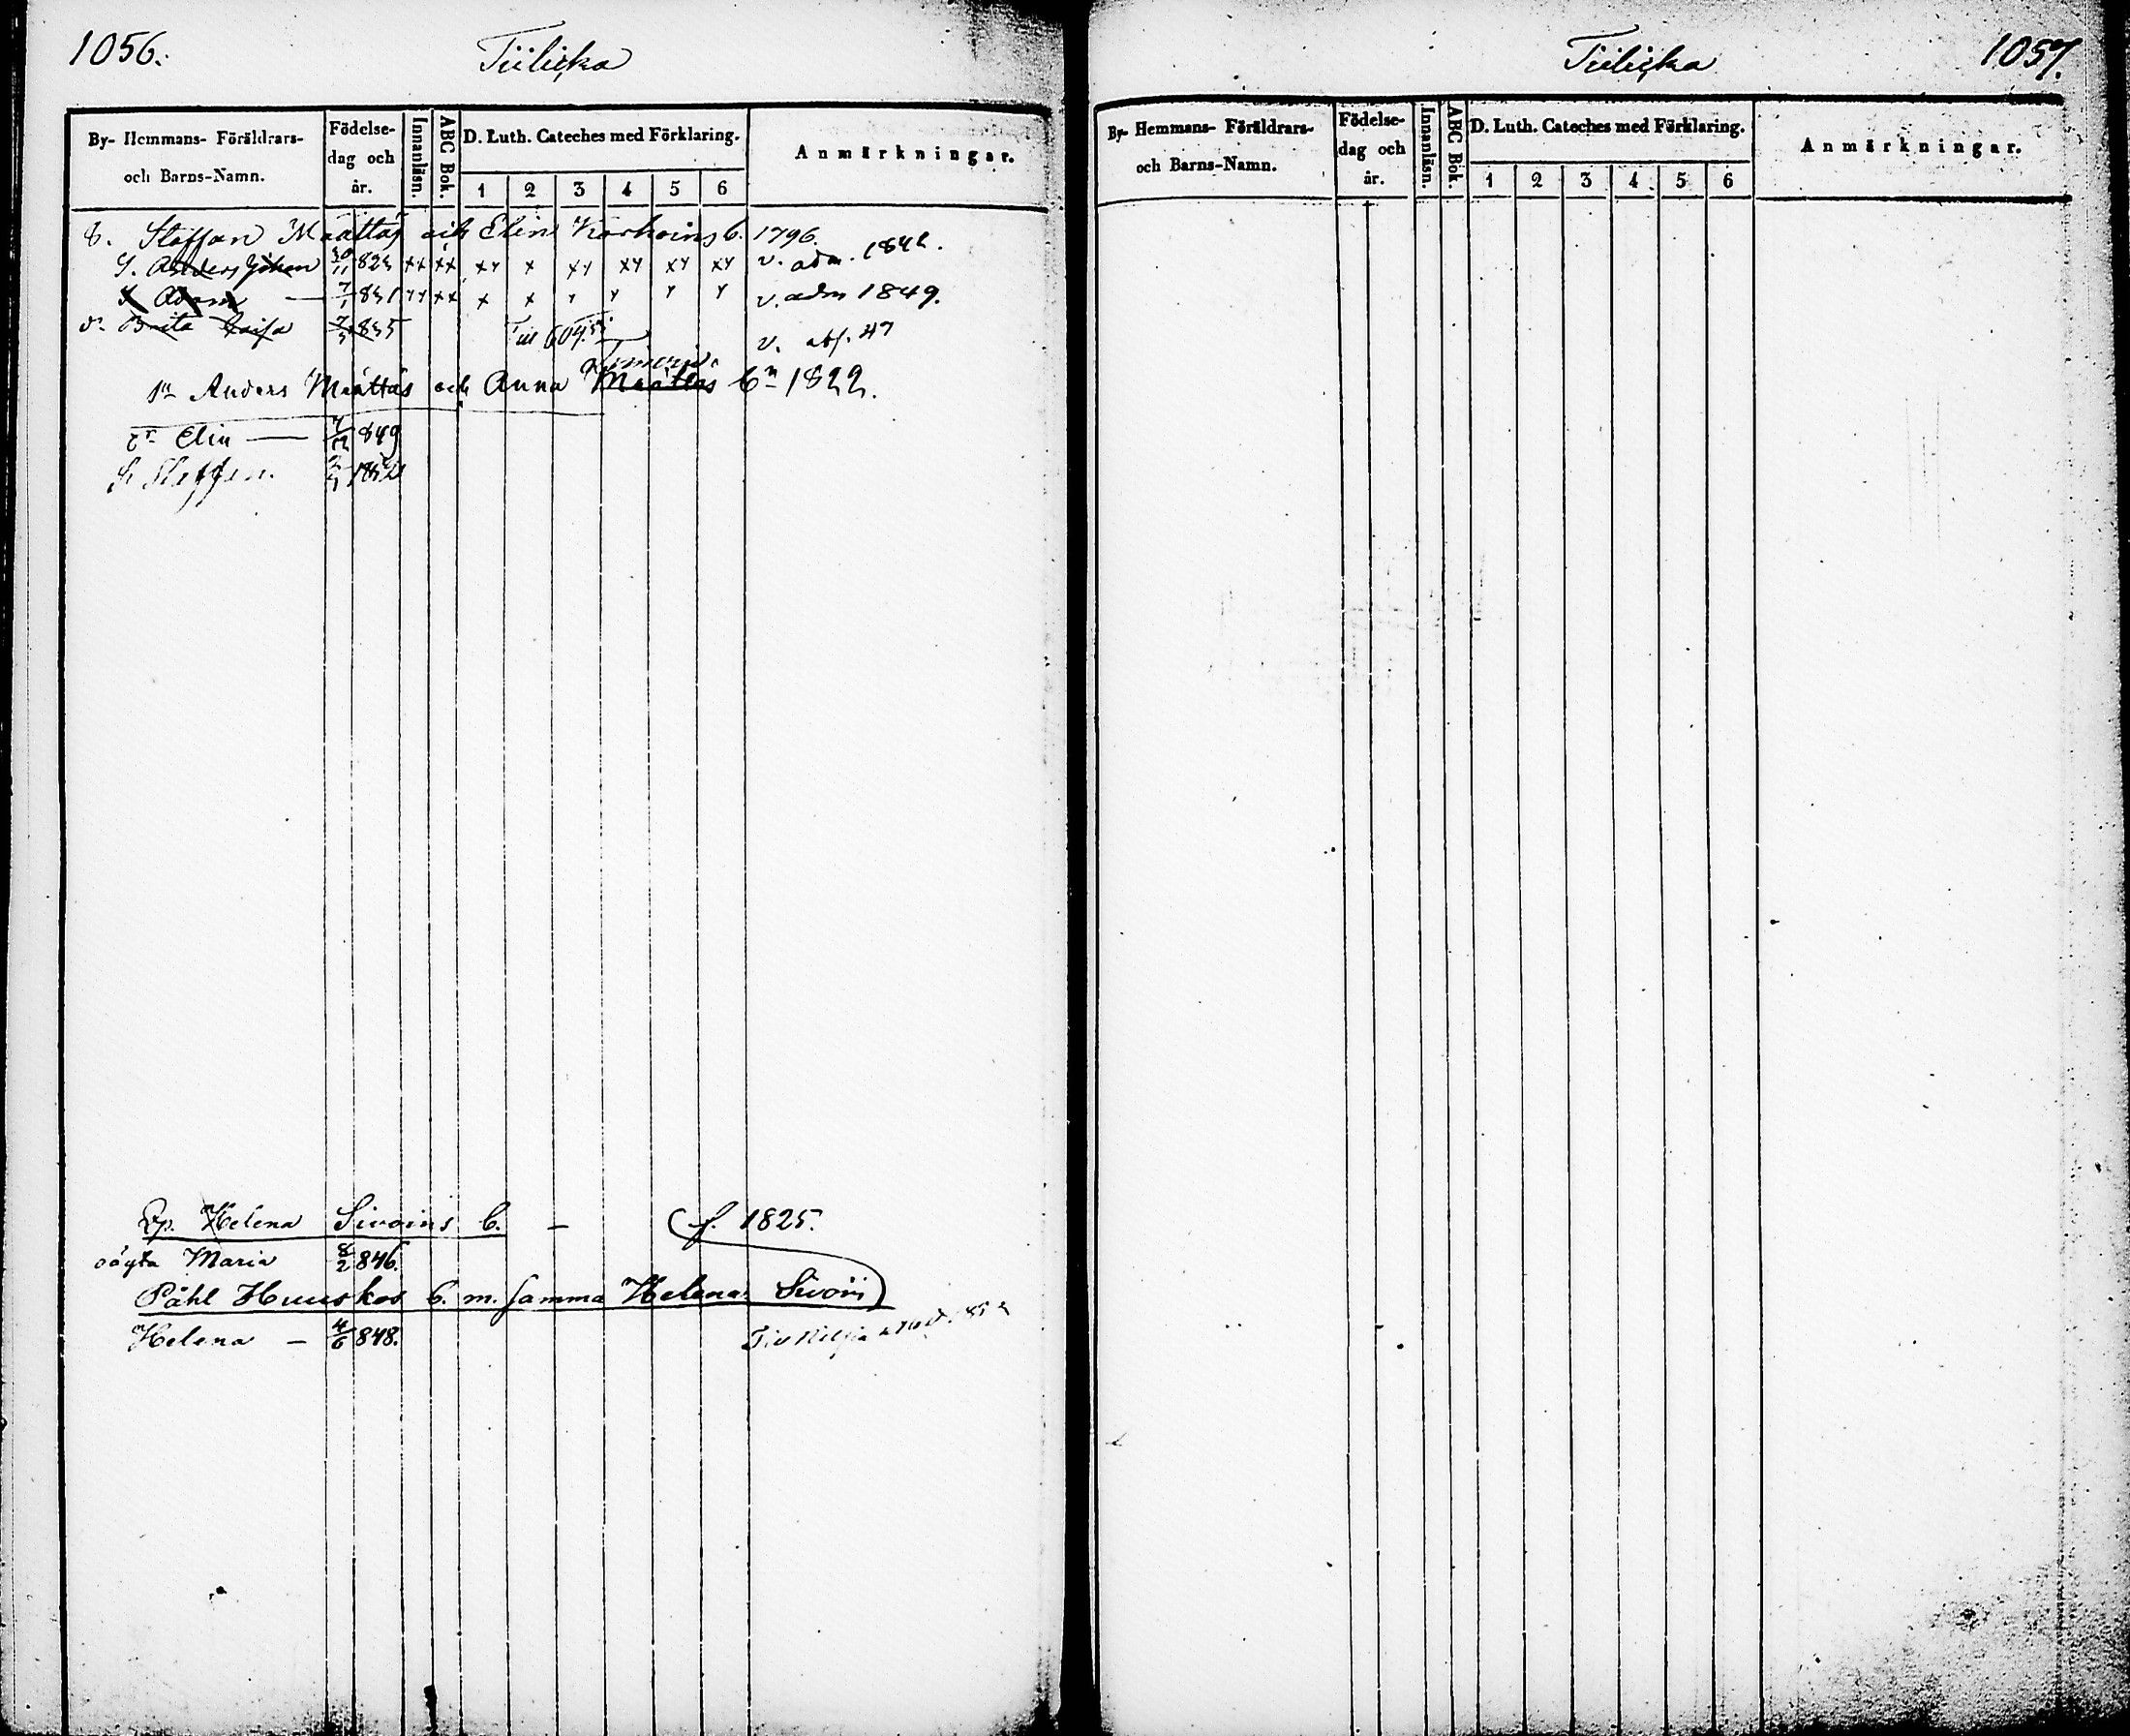 1056.
Tiilicka
By- Hemmans- Föräldrars- och Barns-Namn.
Födelse- dag och år.
Innanläsn.
ABC Bok.
D. Luth. Cateches med Förklaring.
1 2 3 4 5 6
Anmärkningar.
b. Staffan Määttäs och Elin Korhoins b. 1796.
S. Anders Johan 30/11 823 v. adm. 1842.
S Adam — 7/1 831 v. adm 1849.
Dr Brita Caisa 7/3 835 Till v. att. 47
Anders Määttäs och Anna Määttäs bn 1822.
Dr Elin — 7/12 849
S Staffan. 1852
Ep. Helena Sivoins b. — f. 1825.
oägta Maria 8/2 846.
Påhl Huuskos b. m. samma Helena Sivoin
Helena — 4/6 848.
Tiilicka
1057.
By- Hemmans- Föräldrars- och Barns-Namn.
Födelse- dag och år.
Innanläsn.
ABC Bok.
D. Luth. Cateches med Förklaring.
1 2 3 4 5 6
Anmärkningar.